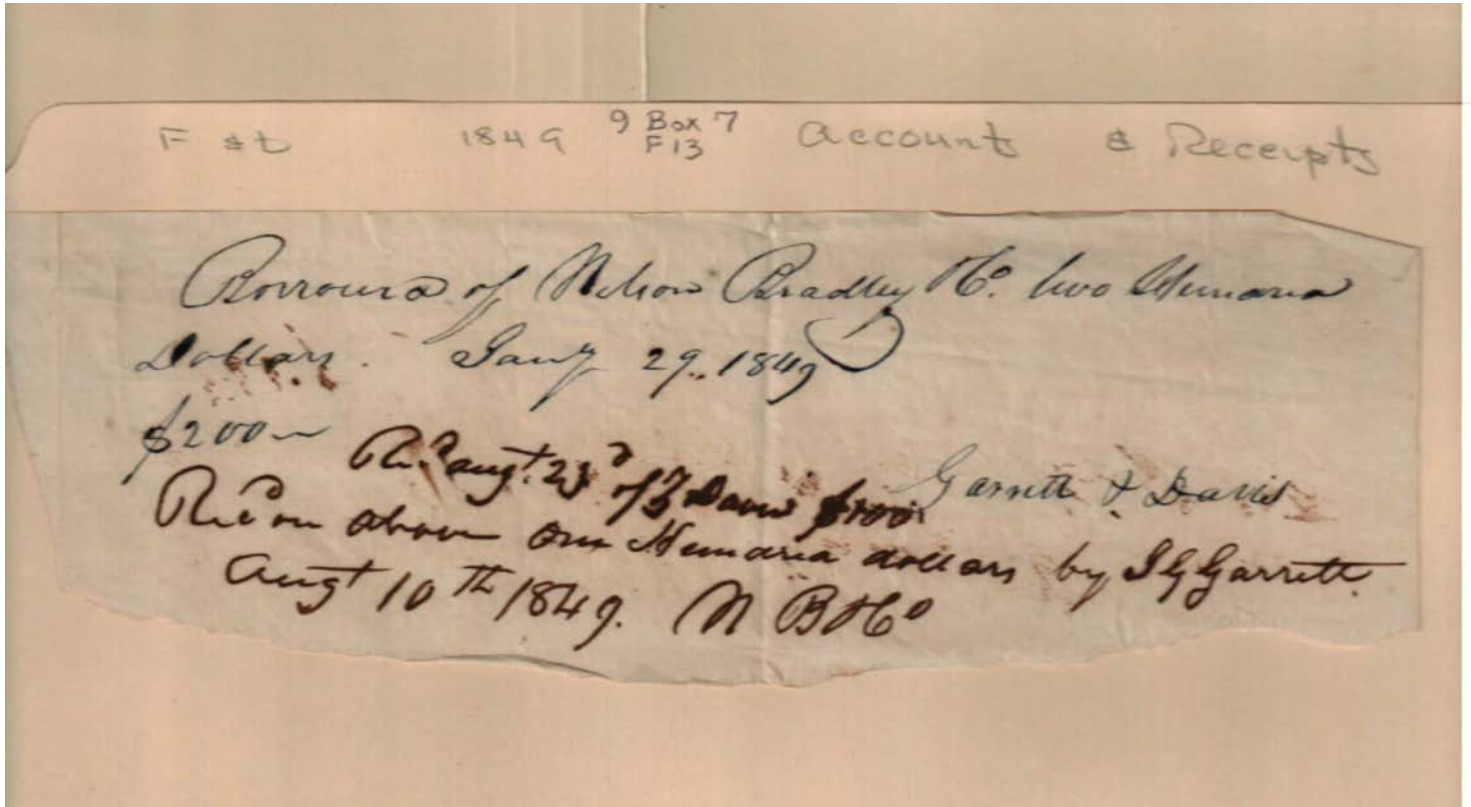 F & D 1849 9 Box 7 Account & Receipts
F13
Borrowed of Nelson Bradley & Co. two Hundred
Dollars. Jany 29. 1849
$200
Garrett & Davis
Recd Augt. 23d of Davis $100
Recd on above one Hundred dollars by I G Garrett.
Augt 10th 1849. N B & Co